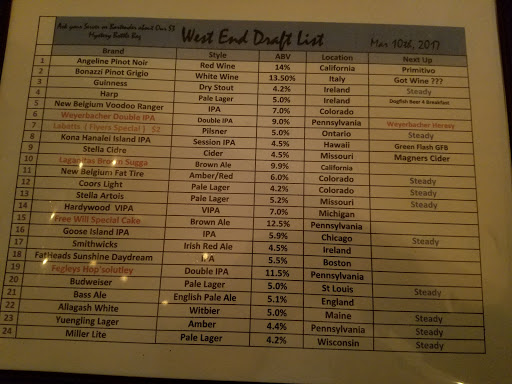 Ask your Server or Bartender about Our $3
Mystery Bottle Bag
West End Draft List Mar 10th, 2017
Brand Style ABV Location Next Up
1 Angeline Pinot Noir Red Wine 14% California Primitivo
2 Bonazzi Pinot Grigio White Wine 13.50% Italy Got Wine ???
3 Guinness Dry Stout 4.2% Ireland Steady
4 Harp Pale Lager 5.0% Ireland Dogfish Beer 4 Breakfast
5 New Belgium Voodoo Ranger IPA 7.0% Colorado
6 Weyerbacher Double IPA Double IPA 9.0% Pennsylvania Weyerbacher Heresy
7 Labatts ( Flyers Special ) $2 Pilsner 5.0% Ontario Steady
8 Kona Hanalei Island IPA Session IPA 4.5% Hawaii Green Flash GFB
9 Stella Cidre Cider 4.5% Missouri Magners Cider
10 Lagunitas Brown Sugga Brown Ale 9.9% California
11 New Belgium Fat Tire Amber/Red 6.0% Colorado Steady
12 Coors Light Pale Lager 4.2% Colorado Steady
13 Stella Artois Pale Lager 5.2% Missouri Steady
14 Hardywood VIPA VIPA 7.0% Michigan
15 Free Will Special Cake Brown Ale 12.5% Pennsylvania
16 Goose Island IPA IPA 5.9% Chicago Steady
17 Smithwicks Irish Red Ale 4.5% Ireland
18 FatHeads Sunshine Daydream IPA 5.5% Boston
19 Fegleys Hop'solutley Double IPA 11.5% Pennsylvania
20 Budweiser Pale Lager 5.0% St Louis Steady
21 Bass Ale English Pale Ale 5.1% England
22 Allagash White Witbier 5.0% Maine Steady
23 Yuengling Lager Amber 4.4% Pennsylvania Steady
24 Miller Lite Pale Lager 4.2% Wisconsin Steady